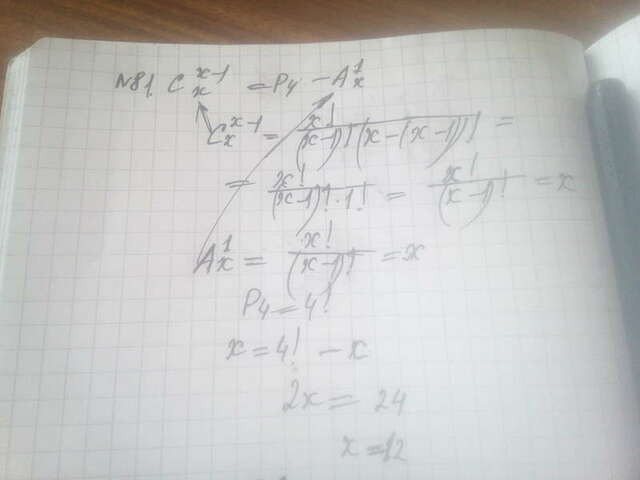 №81. C_x^{x-1} = P_4 - A_x^1
C_x^{x-1} = x! / ((x-1)! (x-(x-1))!) =
= x! / ((x-1)! · 1!) = x! / (x-1)! = x
A_x^1 = x! / (x-1)! = x
P_4 = 4!
x = 4! - x
2x = 24
x = 12